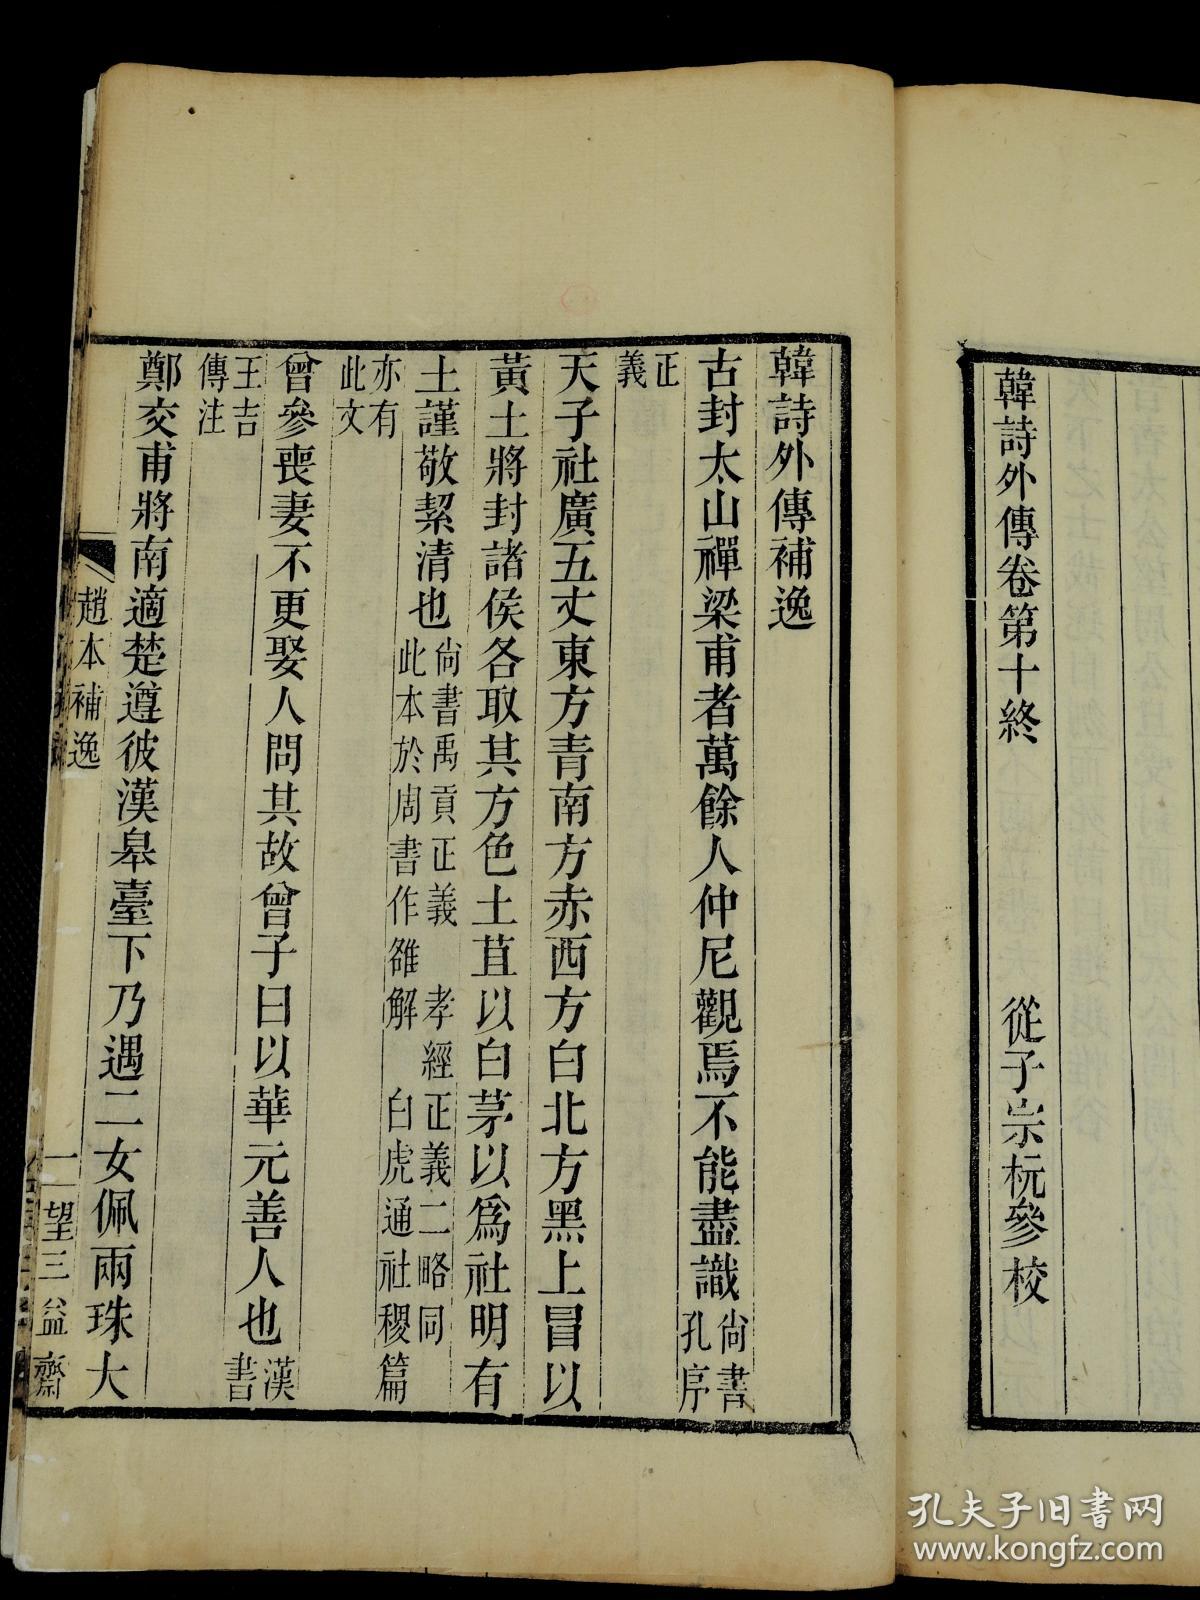 韓詩外傳卷第十終
從子宗杬參校
韓詩外傳補逸
古封太山禪梁甫者萬餘人仲尼觀焉不能盡識尚書
孔序
正
義
天子社廣五丈東方青南方赤西方白北方黑上冒以
黃土將封諸侯各取其方色土苴以白茅以爲社明有
土謹敬絜清也尚書禹貢正義 孝經正義二略同
此本於周書作雒解 白虎通社稷篇
亦有
此文
曾參喪妻不更娶人問其故曾子曰以華元善人也漢
書
王吉
傳注
鄭交甫將南適楚遵彼漢皋臺下乃遇二女佩兩珠大
趙本補逸
一
望三益齋
孔夫子旧书网
www.kongfz.com